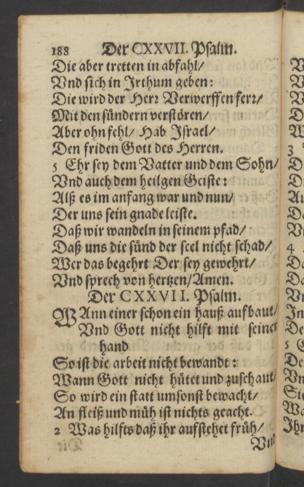 188 Der CXXVII. Psalm.
Die aber tretten in abfahl/
Vnd sich in Irthum geben:
Die wird der Herr Verwerffen ferr/
Mit den sündern verstören/
Aber ohn fehl/ Hab Israel/
Den friden Gott des Herren.
5 Ehr sey dem Vatter und dem Sohn/
Vnd auch dem heilgen Geiste:
Alß es im anfang war und nun/
Der uns sein gnade leiste.
Daß wir wandeln in seinem pfad/
Daß uns die sünd der seel nicht schad/
Wer das begehrt Der sey gewehrt/
Vnd sprech von hertzen/ Amen.
Der CXXVII. Psalm.
WAnn einer schon ein hauß aufbaut/
Vnd Gott nicht hilft mit seiner
hand
So ist die arbeit nicht bewandt:
Wann Gott nicht hütet und zuschaut
So wird ein statt umsonst bewacht/
An fleiß und müh ist nichts geacht.
2 Was hilfts daß ihr aufstehet früh/
Vnd